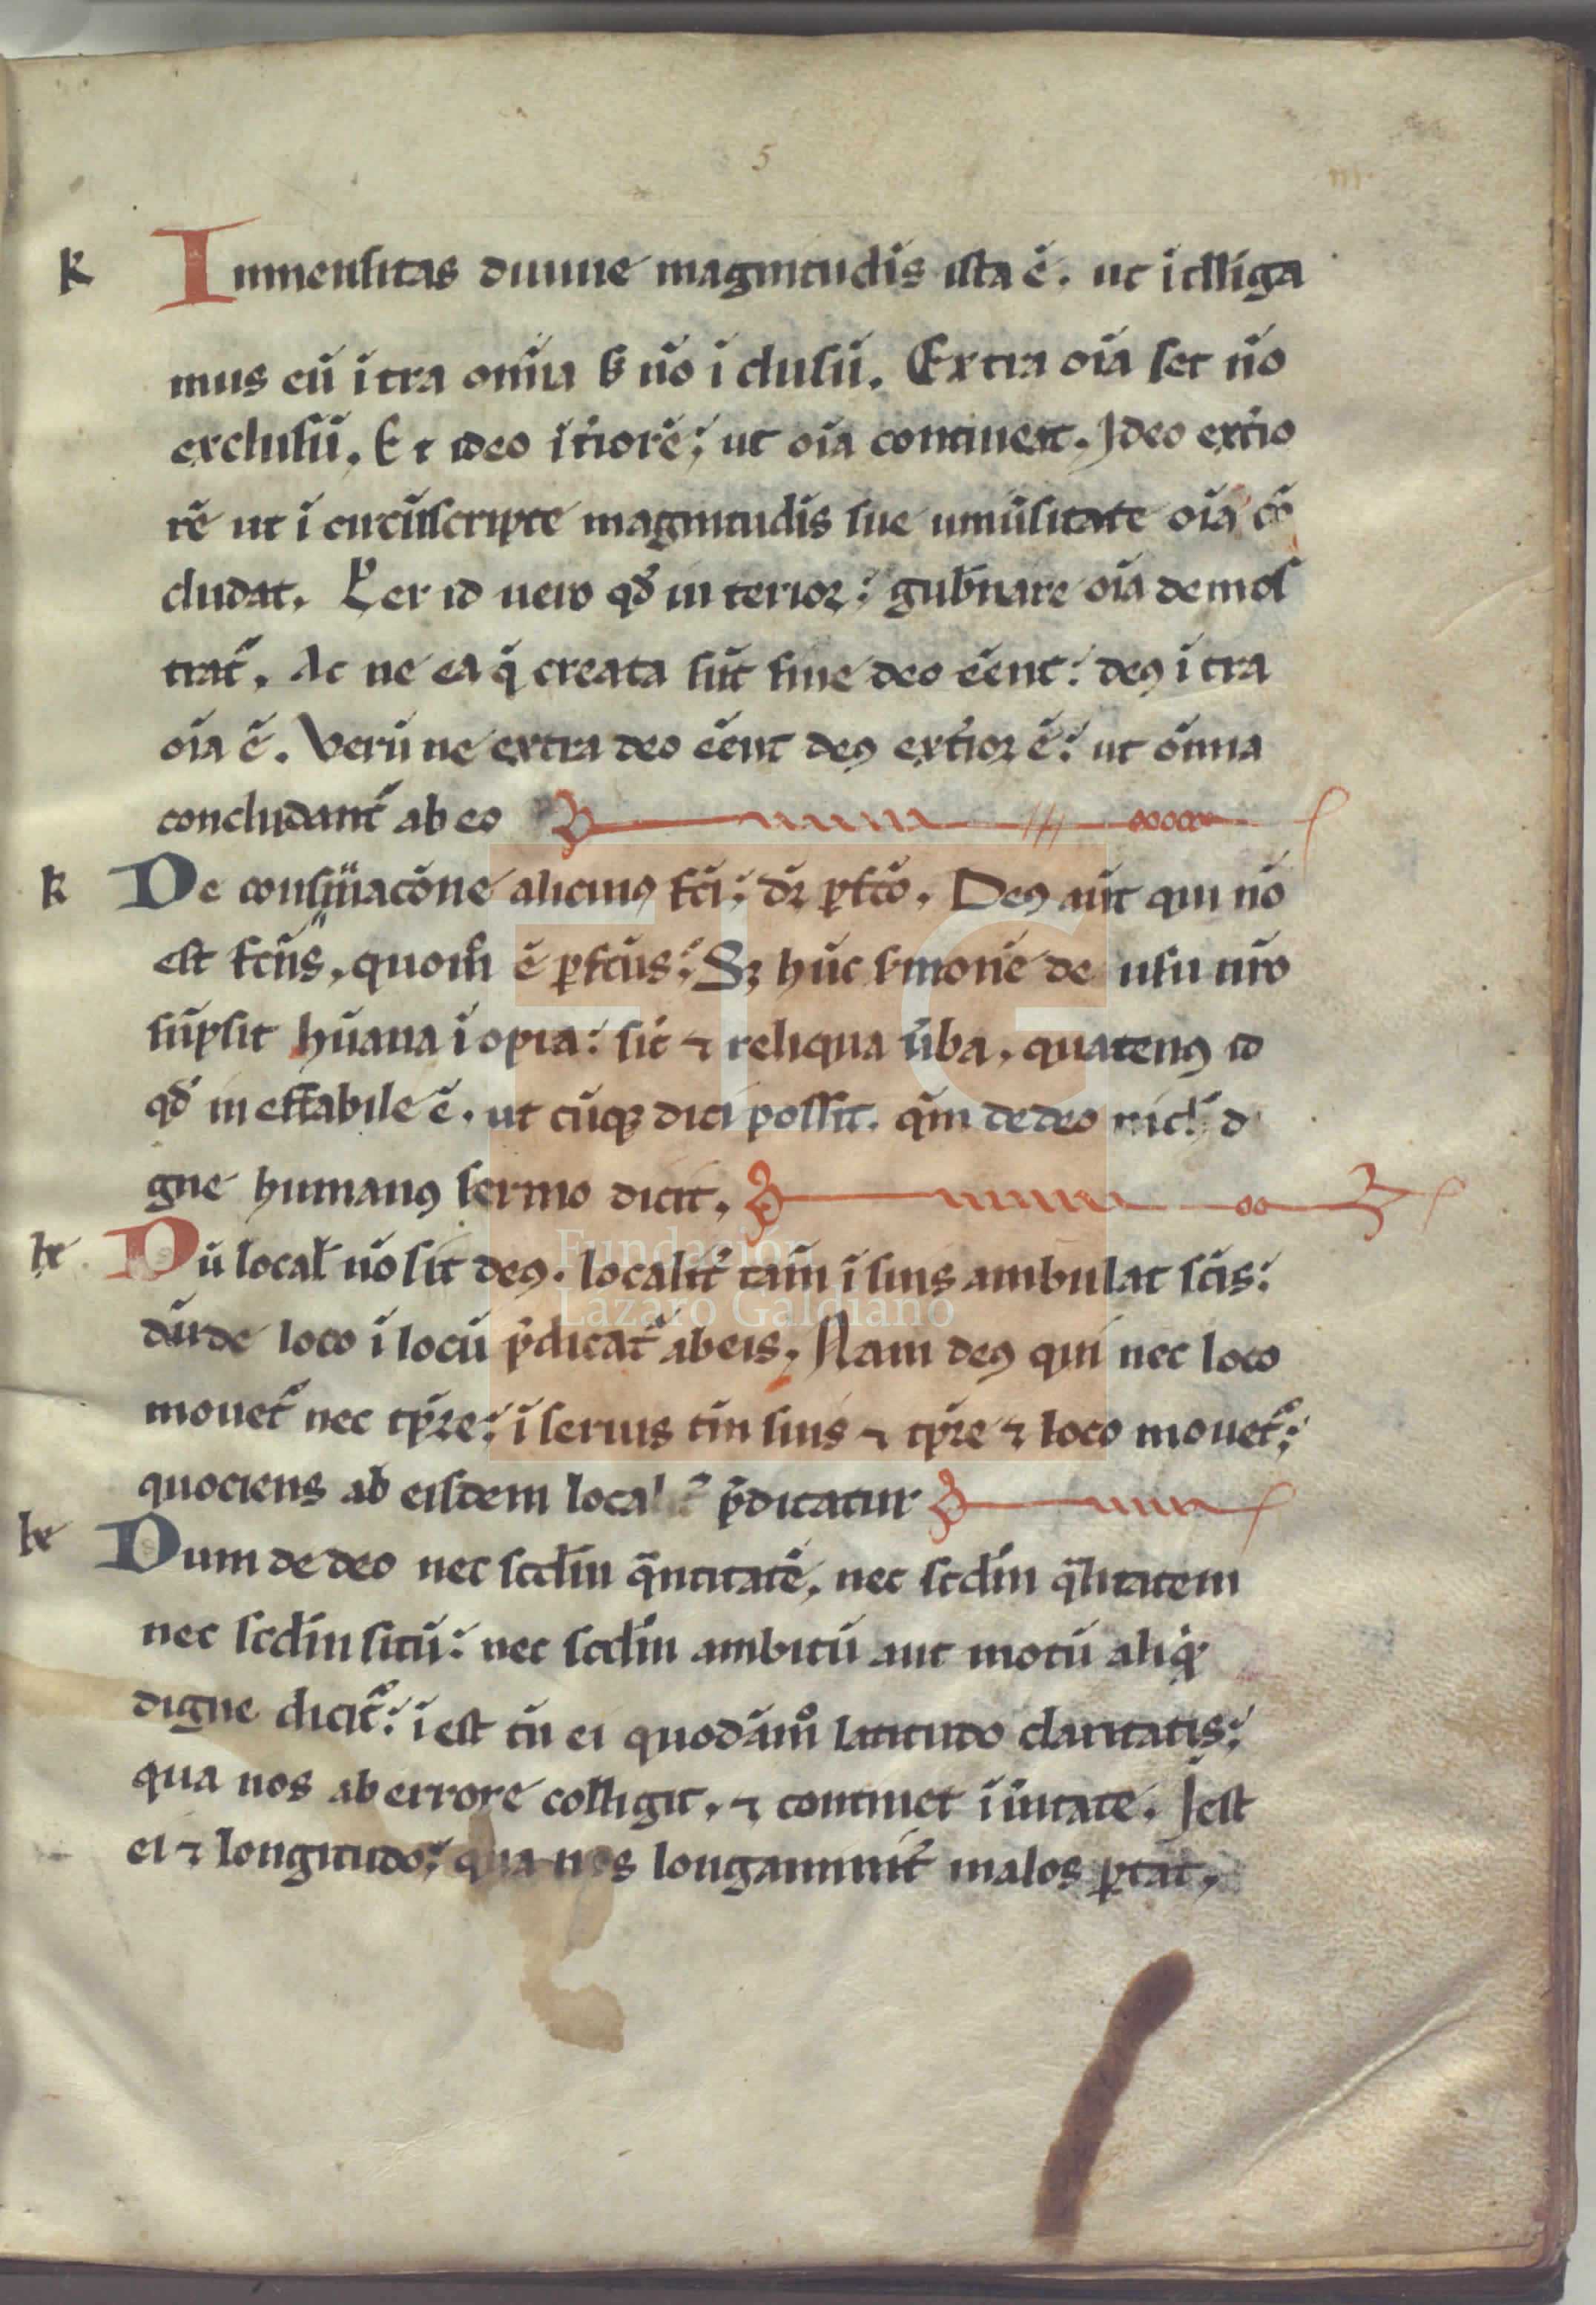 5
k Inmensitas diuine magnitudis ista ē. ut ītlliga
mus eū ītra om̄ia s; nō īclusū. Extra oīa set nō
exclusū. Et ideo īt̄iorē; ut oīa contineat. Ideo ext̄io
rē ut īcircūscripte magnitudis sue inmēsitate oīa cō
cludat. Per id uero qd̄ interior; gub̄nare oīa demos
trat̄. Ac ne ea q̄ creata sūt sine deo ēent; deꝯ ītra
oīa ē. Verū ne extra deo ēent deꝯ ext̄ior ē; ut om̄ia
concludant̄ ab eo
k De consūmacōne alicuiꝯ fc̄i; dr̄ ꝑfc̄o. Deꝯ aūt qui nō
est fc̄us, quom̄ ē ꝑfc̄us; Sꝫ hūc s̄monē de usu nr̄o
sūpsit hūana īopia; sic̄ ⁊ reliqua ūba, quatenꝯ id
qd̄ ineffabile ē. ut cūqꝫ dici possit. qm̄ de deo nich̄ di
gne humanꝯ sermo dicit.
Dū local̄ nō sit deꝯ. localit̄ tam̄ ī suis ambulat sc̄is;
dū de loco ī locū p̄dicat̄ ab eis. Nam deꝯ qui nec loco
mouet̄ nec tp̄re; ī seruis tn̄ suis ⁊ tp̄re ⁊ loco mouet̄;
quociens ab eisdem localit̄ p̄dicatur
Dum de deo nec scd̄m q̄ntitatē, nec scd̄m q̄litatem
nec scd̄m sitū; nec scd̄m ambitū aut motū aliqd̄
digne dicit̄; īest tn̄ ei quodām̊ latitudo claritatis;
qua nos ab errore colligit, ⁊ continet ī ūitate. Iest
ei ⁊ longitudo; qua nos longanimit̄ malos ꝑtat,
Fundación
Lázaro Galdiano